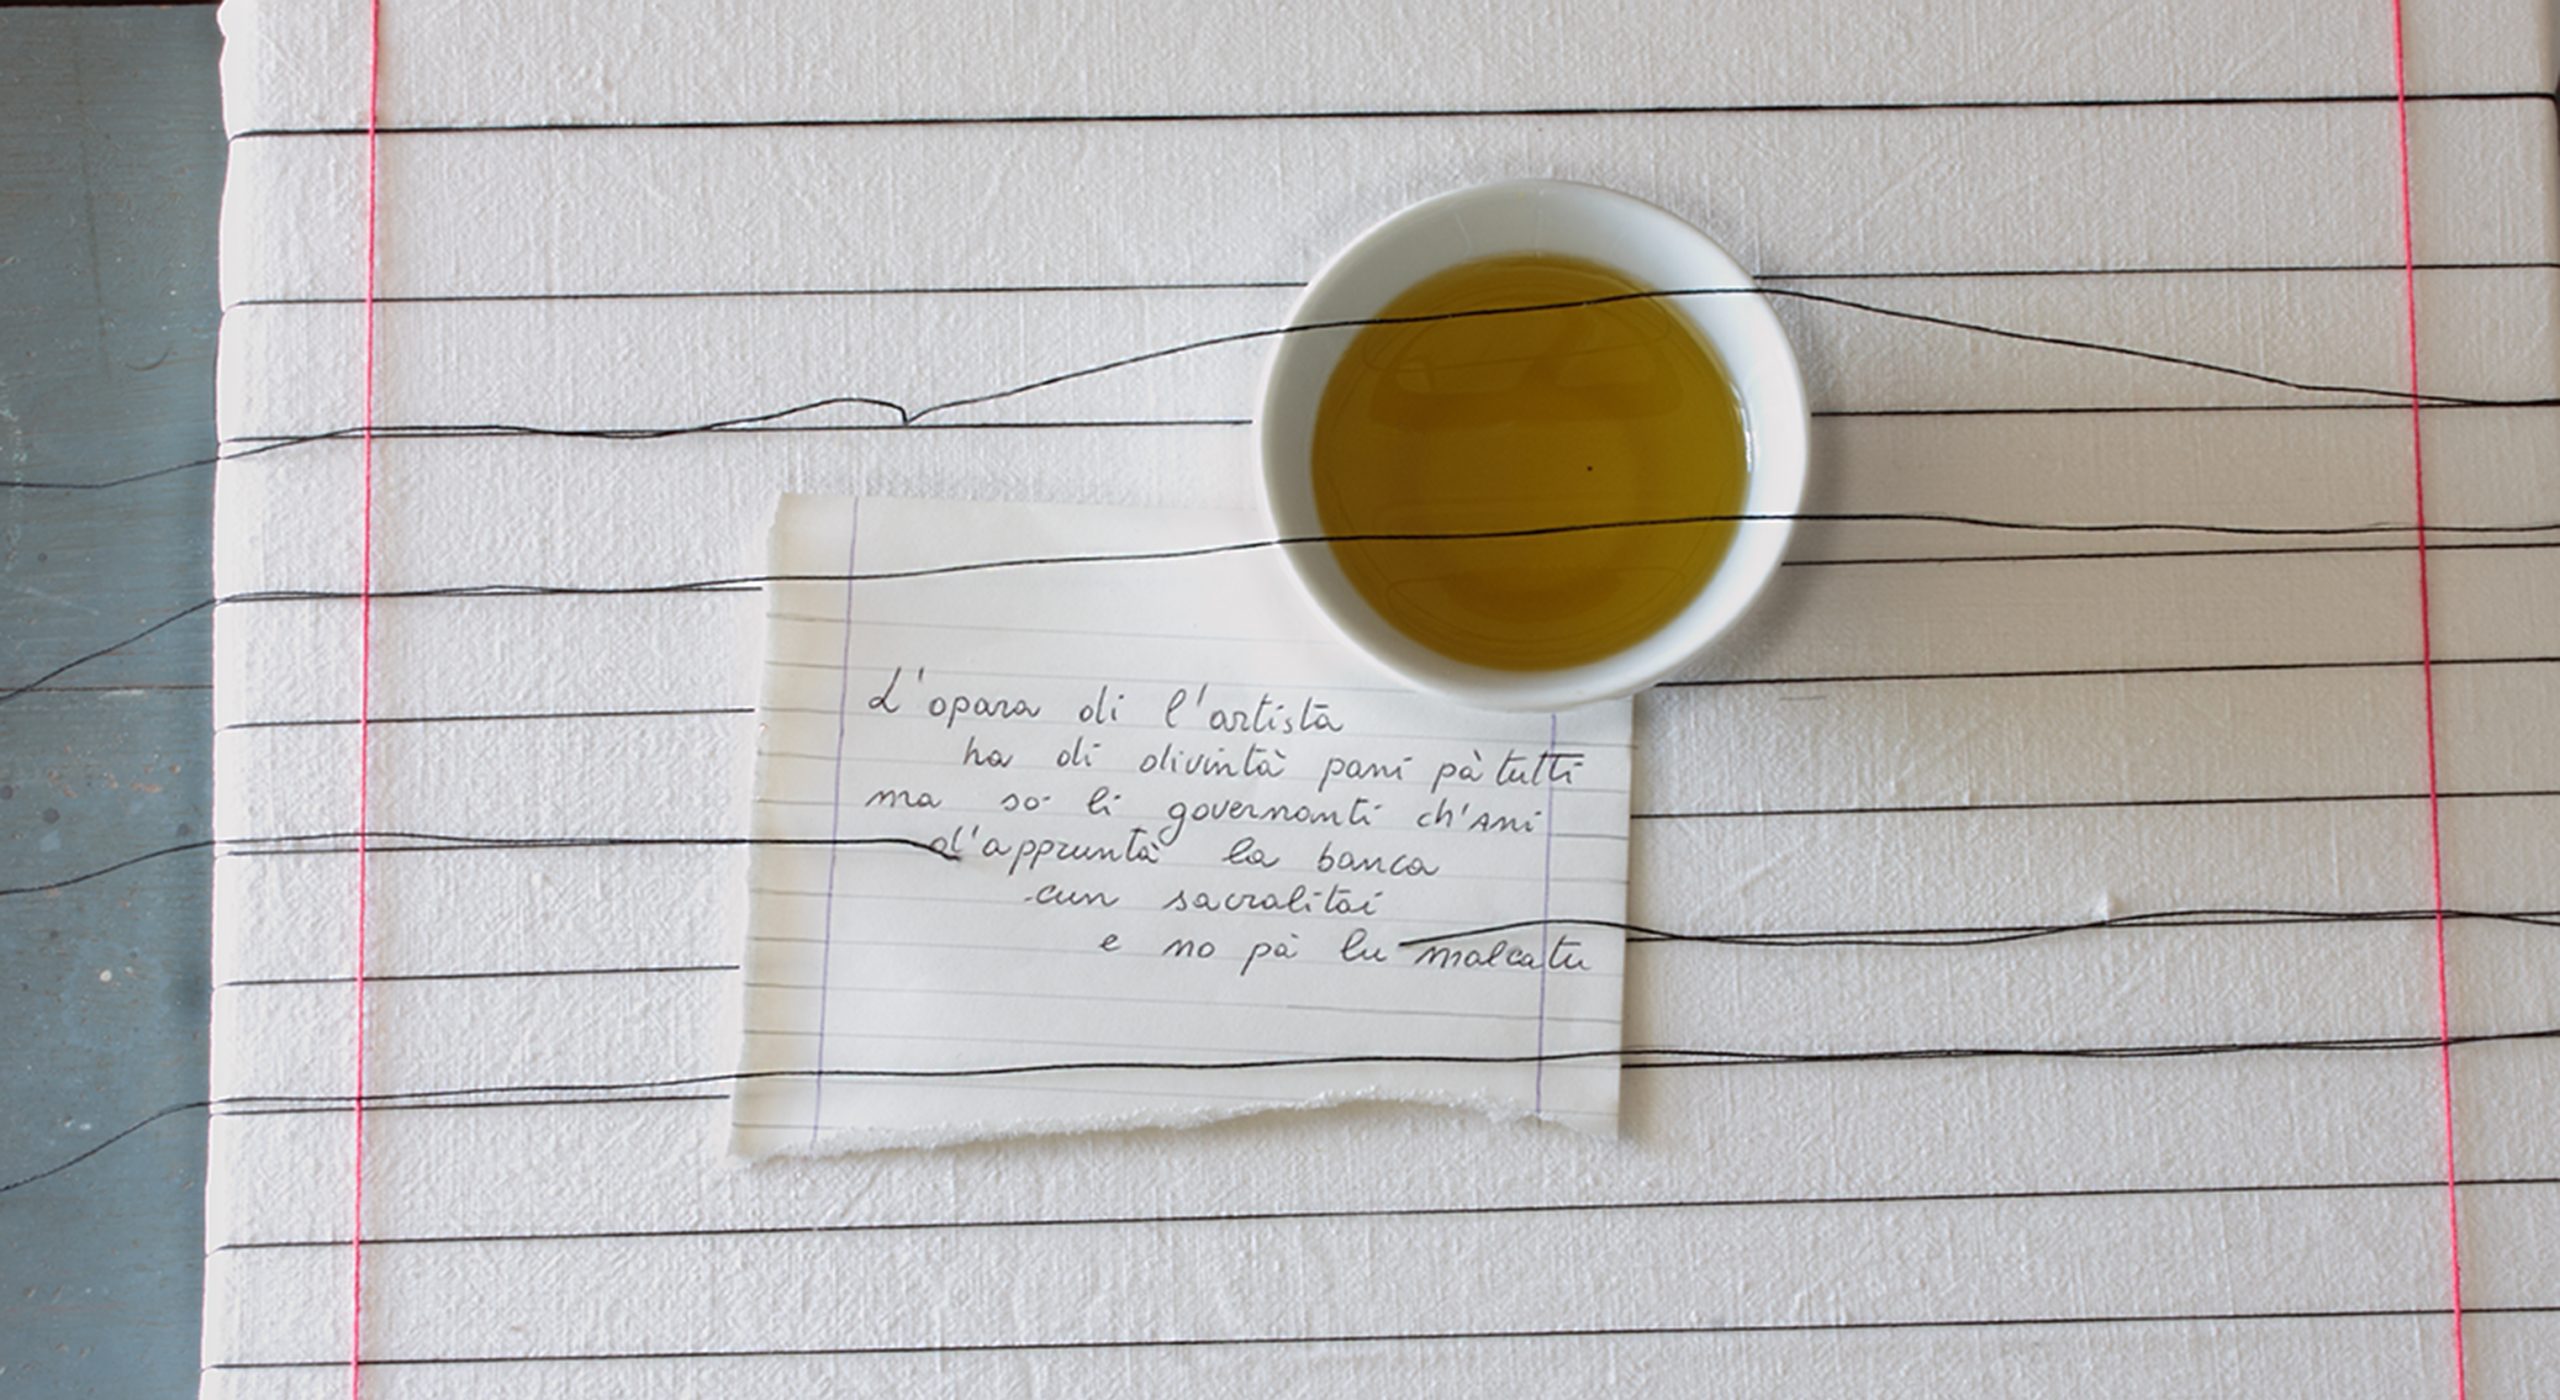 L'opara di l'artista
ha di divintà pani pà tutti
ma so li governanti ch'ani
d'appruntà la banca
cun sacralitai
e no pà lu malcatu